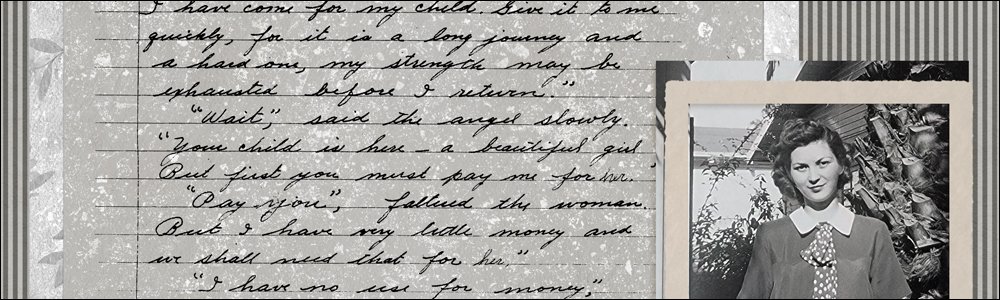 I have come for my child. Give it to me
quickly, for it is a long journey and
a hard one, my strength may be
exhausted before I return."
"Wait", said the angel slowly.
"Your child is here – a beautiful girl
But first you must pay me for her."
"Pay you", faltered the woman.
But I have very little money and
we shall need that for her."
"I have no use for money,"